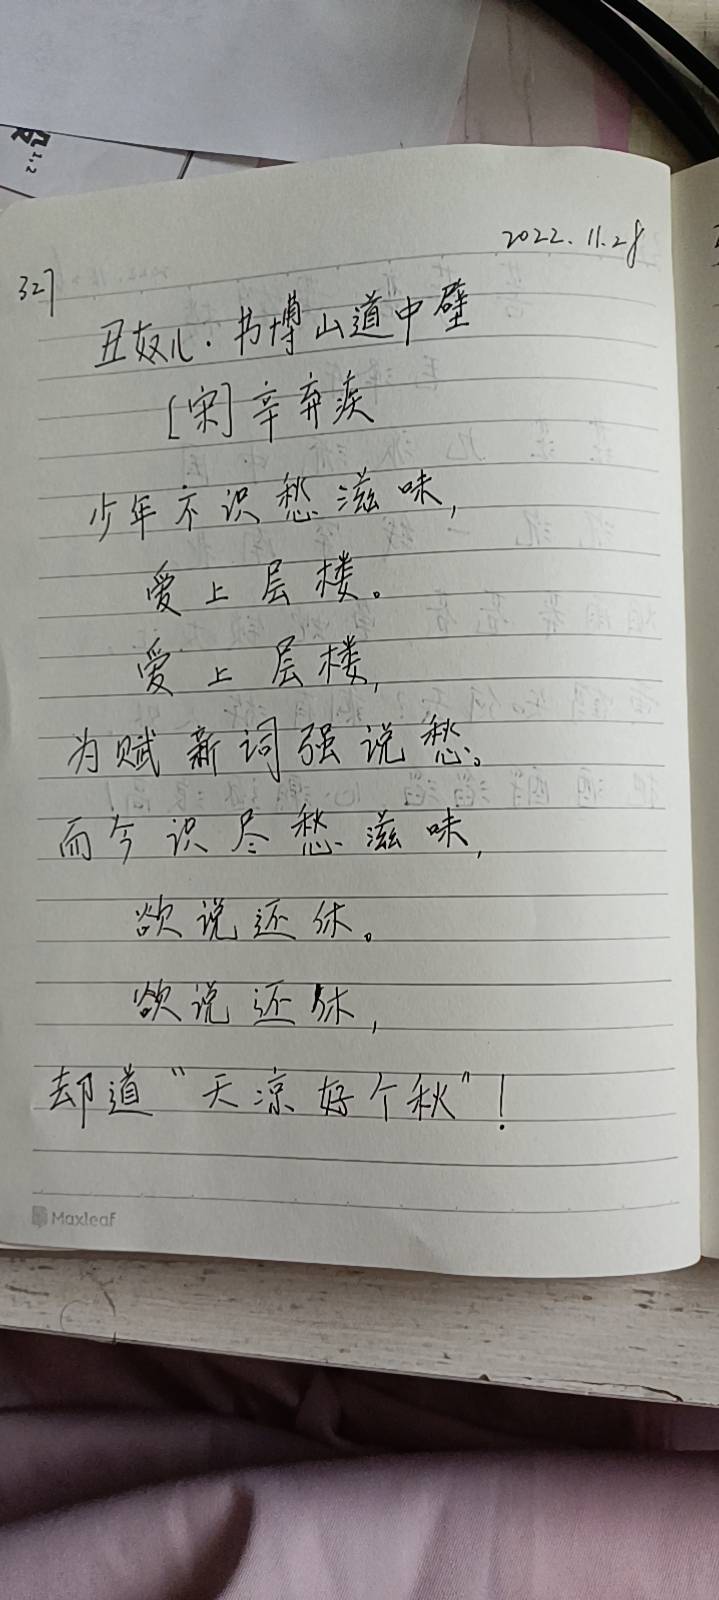 2022.11.28
327
丑奴儿·书博山道中壁
[宋]辛弃疾
少年不识愁滋味,
爱上层楼。
爱上层楼,
为赋新词强说愁。
而今识尽愁滋味,
欲说还休。
欲说还休,
却道“天凉好个秋”!
Maxleaf